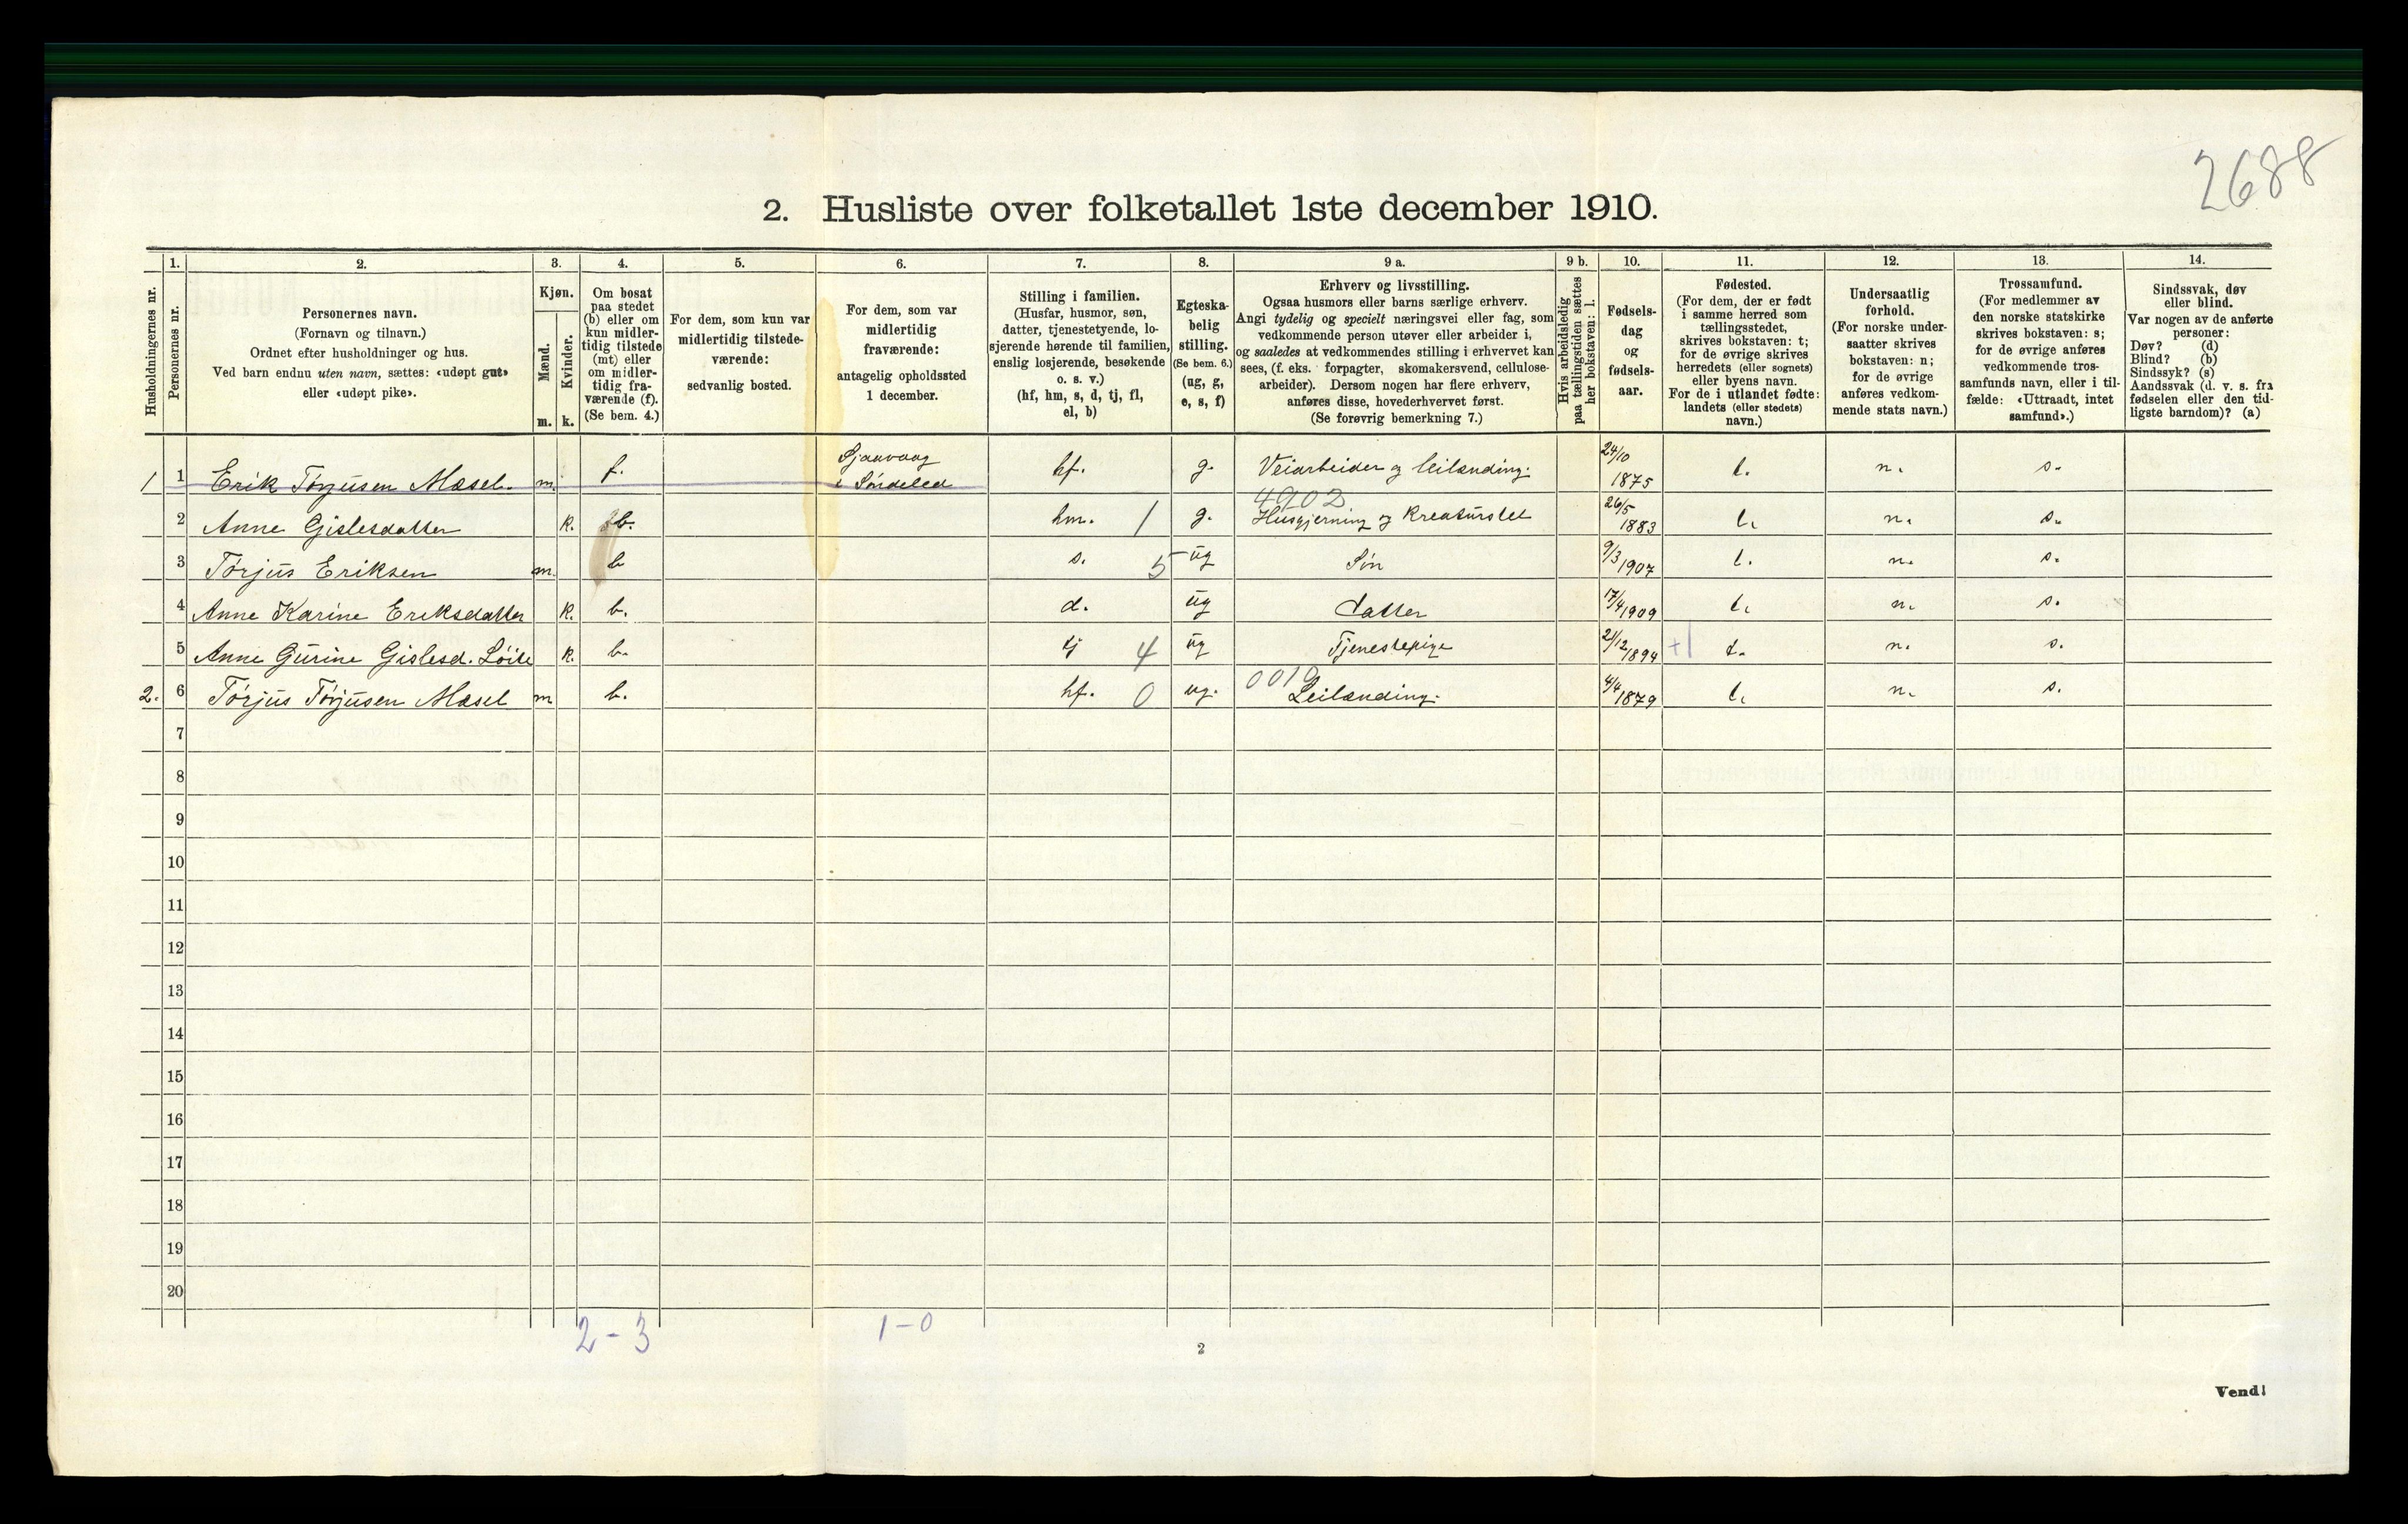 2688
2. Husliste over folketallet 1ste december 1910.
Husholdningernes nr.
1. Personernes nr.
2. Personernes navn.
(Fornavn og tilnavn.)
Ordnet efter husholdninger og hus.
Ved barn endnu uten navn, sættes: «udøpt gut»
eller «udøpt pike».
3. Kjøn.
Mænd. m.
Kvinder. k.
4. Om bosat
paa stedet
(b) eller om
kun midler-
tidig tilstede
(mt) eller
om midler-
tidig fra-
værende (f).
(Se bem. 4.)
5. For dem, som kun var
midlertidig tilstede-
værende:
sedvanlig bosted.
6. For dem, som var
midlertidig
fraværende:
antagelig opholdssted
1 december.
7. Stilling i familien.
(Husfar, husmor, søn,
datter, tjenestetyende, lo-
sjerende hørende til familien,
enslig losjerende, besøkende
o. s. v.)
(hf, hm, s, d, tj, fl,
el, b)
8. Egteska-
belig
stilling.
(Se bem. 6.)
(ug, g,
e, s, f)
9 a. Erhverv og livsstilling.
Ogsaa husmors eller barns særlige erhverv.
Angi tydelig og specielt næringsvei eller fag, som
vedkommende person utøver eller arbeider i,
og saaledes at vedkommendes stilling i erhvervet kan
sees, (f. eks. forpagter, skomakersvend, cellulose-
arbeider). Dersom nogen har flere erhverv,
anføres disse, hovederhvervet først.
(Se forøvrig bemerkning 7.)
9 b. Hvis arbeidsledig
paa tællingstiden sættes
her bokstaven: l.
10. Fødsels-
dag
og
fødsels-
aar.
11. Fødested.
(For dem, der er født
i samme herred som
tællingsstedet,
skrives bokstaven: t;
for de øvrige skrives
herredets (eller sognets)
eller byens navn.
For de i utlandet fødte:
landets (eller stedets)
navn.)
12. Undersaatlig
forhold.
(For norske under-
saatter skrives
bokstaven: n;
for de øvrige
anføres vedkom-
mende stats navn.)
13. Trossamfund.
(For medlemmer av
den norske statskirke
skrives bokstaven: s;
for de øvrige anføres
vedkommende tros-
samfunds navn, eller i til-
fælde: «Uttraadt, intet
samfund».)
14. Sindssvak, døv
eller blind.
Var nogen av de anførte
personer:
Døv? (d)
Blind? (b)
Sindssyk? (s)
Aandssvak (d. v. s. fra
fødselen eller den tid-
ligste barndom)? (a)
1 1 Erik Tørjusen Mæsel. m. f. i Søndeled hf. g. Veiarbeider og leilænding. 24/10 1875 t. n. s.
2 Anne Gislesdatter k. b. hm. 1 g. 4902 Husgjerning og Kreaturstel 26/5 1883 t. n. s.
3 Tørjus Eriksen m. b s. 5 ug Søn 9/3 1907 t. n. s.
4 Anne Karine Eriksdatter k. b. d. ug datter 17/4 1909 t. n. s.
5 Anne Gurine Gislesd. Løite k. b. tj 4 ug Tjenestepige 21/12 1894 +1 t. n. s.
2. 6 Tørjus Tørjusen Mæsel m b. hf. 0 ug. 0019 Leilænding. 4/4 1879 t. n. s.
7
8
9
10
11
12
13
14
15
16
17
18
19
20
2-3 1-0
2
Vend!